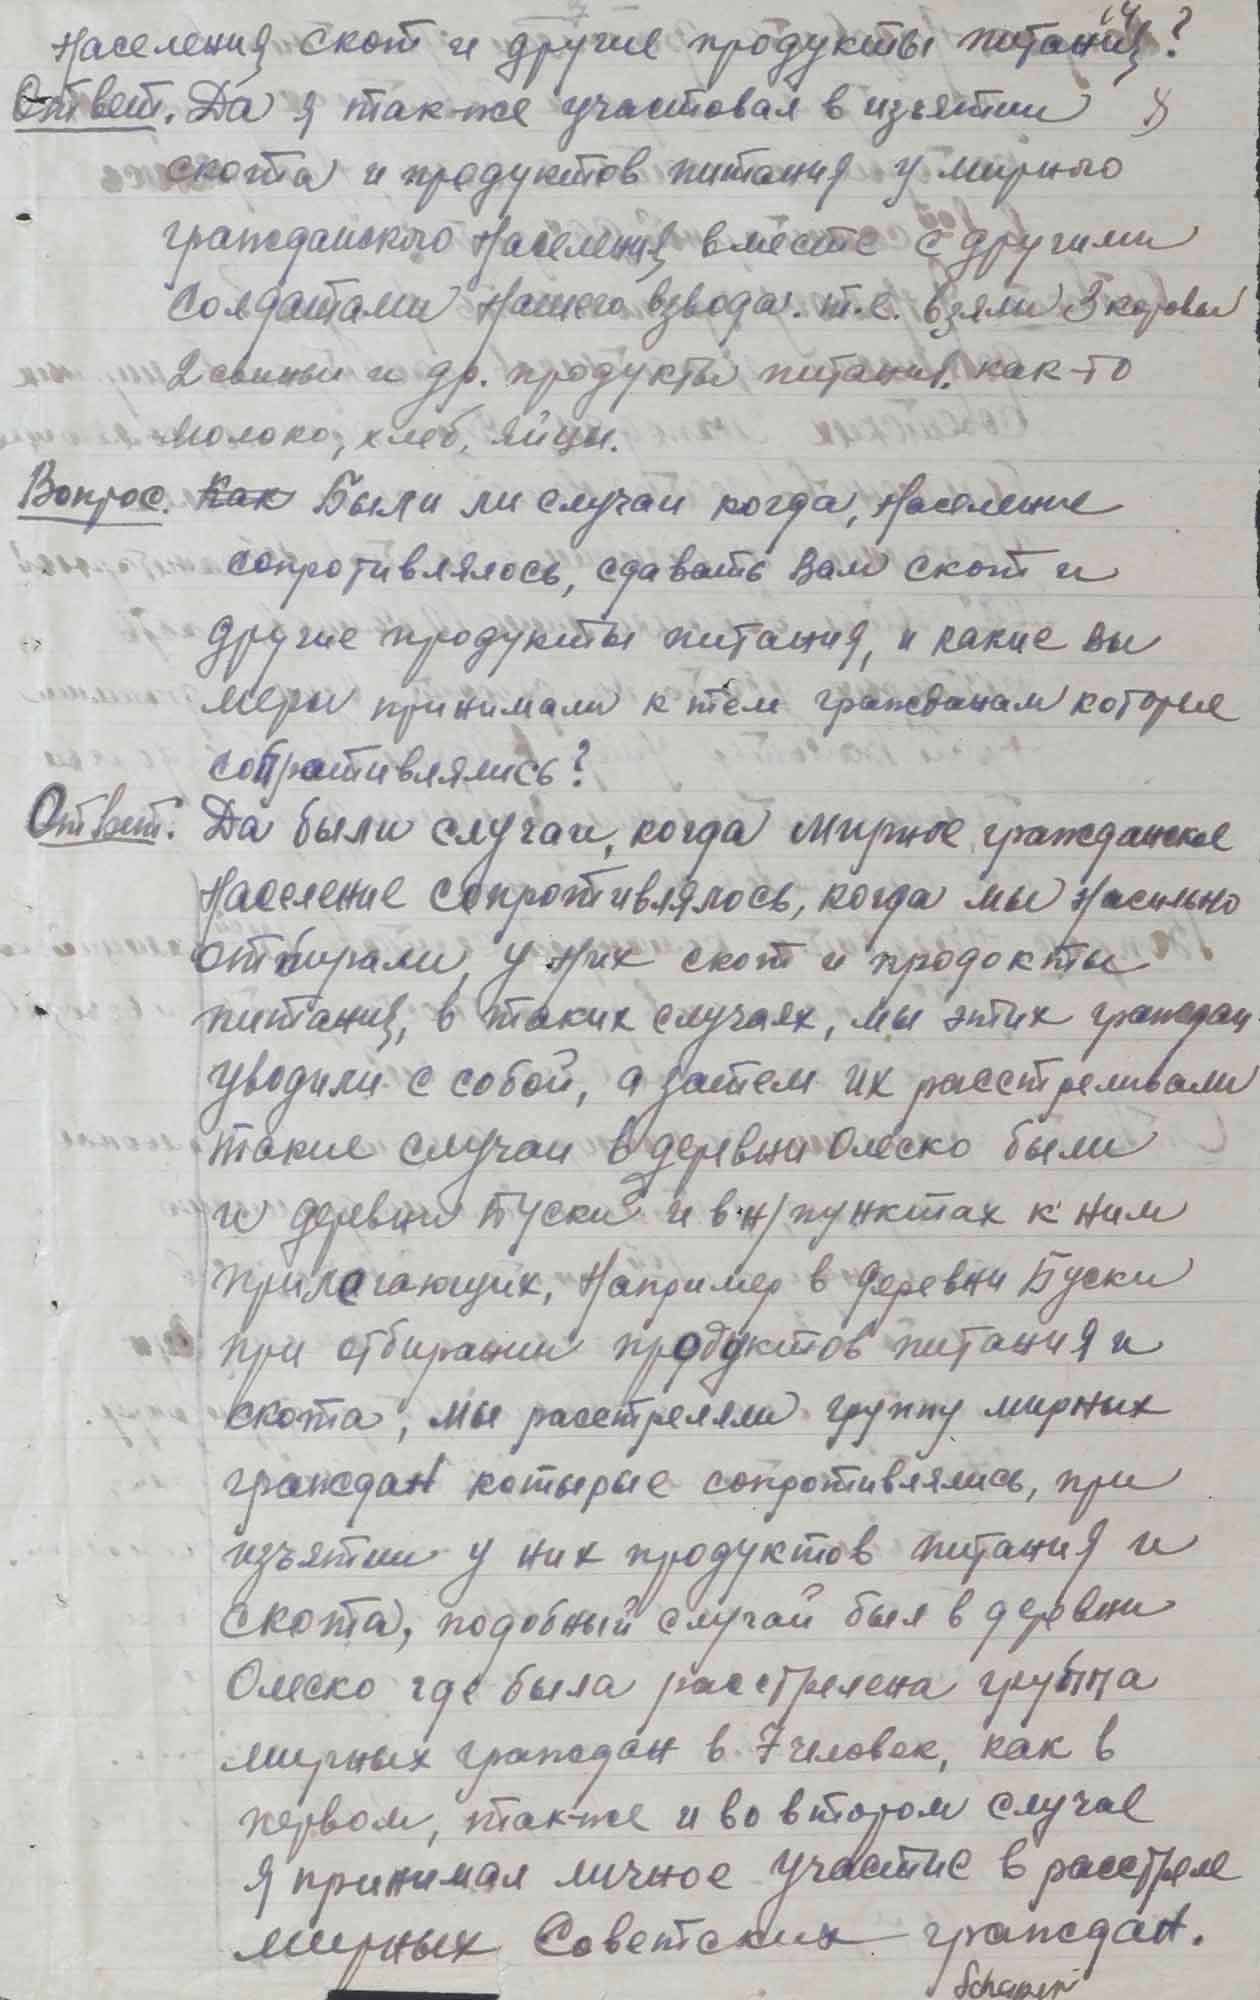 населения скот и другие продукты питания?
Ответ. Да я так-же участвовал в изъятии
скота и продуктов питания у мирного
гражданского населения, вместе с другими
солдатами нашего взвода. т.е. взяли 3 коровы
2 свиньи и др. продукты питания. как-то
молоко, хлеб, яйцы.
Вопрос. Как Были ли случаи когда, население
сопротивлялось, сдавать вам скот и
другие продукты питания, и какие вы
меры принимали к тем гражданам которые
сопротивлялись?
Ответ. Да были случаи, когда мирное гражданское
население сопротивлялось, когда мы насильно
отбирали, у них скот и продокты
питания, в таких случаях, мы этих граждан
уводили с собой, а затем их расстреливали
такие случаи в деревни Олеско были
и деревни Буски и в н/пунктах к ним
прилегающих, например в деревни Буски
при отбирании продуктов питания и
скота, мы расстреляли группу мирных
граждан котырые сопротивлялись, при
изъятии у них продуктов питания и
скота, подобный случай был в деревни
Олеско где была расстрелена группа
мирных граждан в 7 человек, как в
первом, так-же и во втором случае
я принимал личное участие в расстреле
мирных Советских граждан.